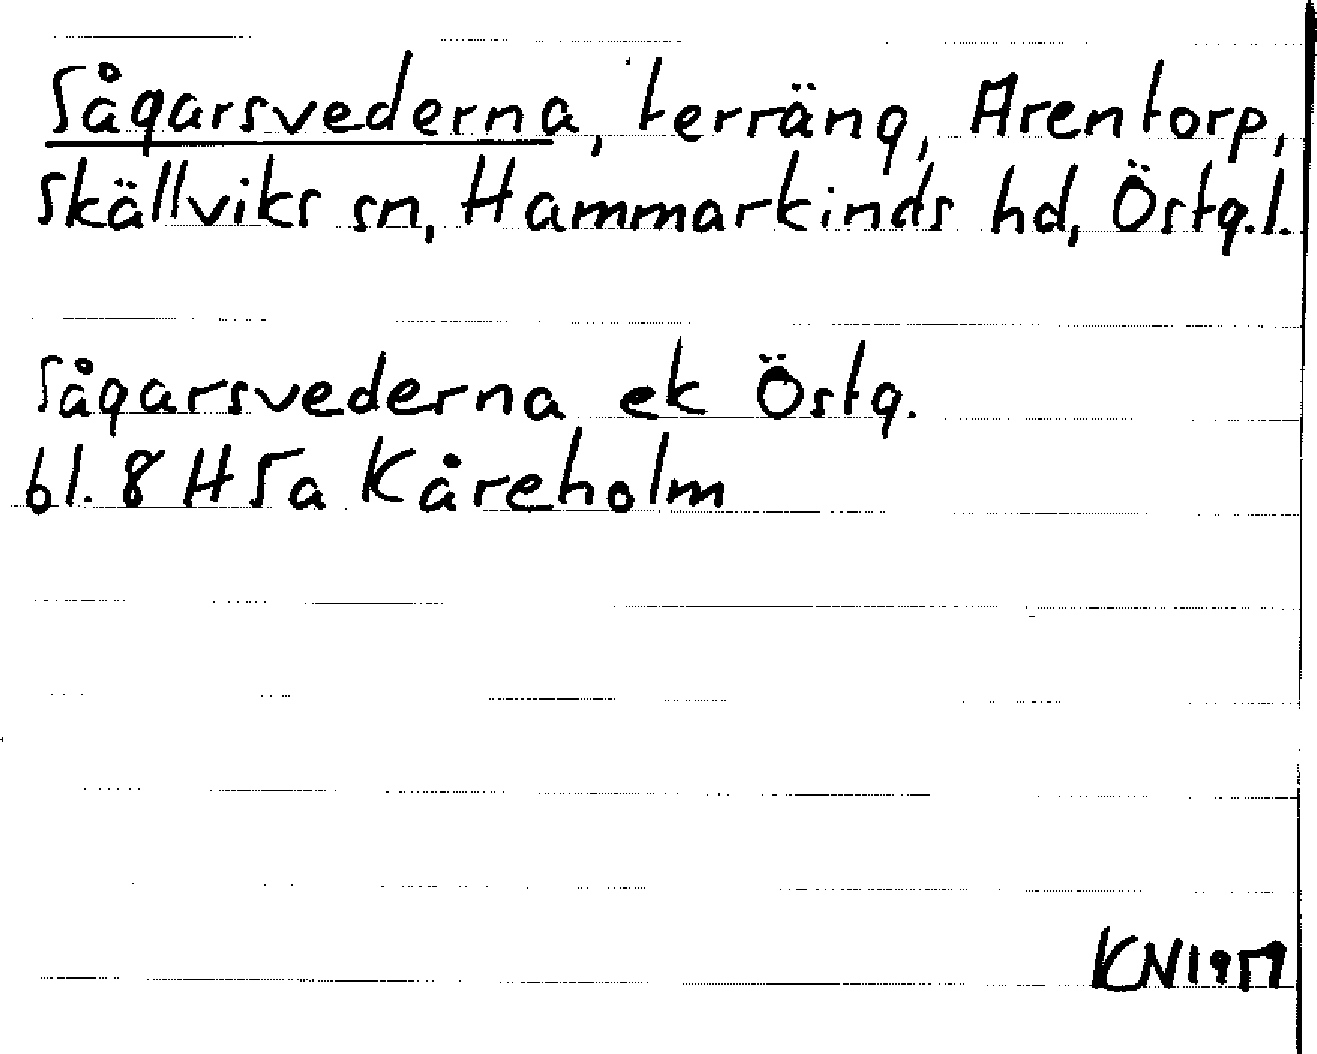 Sågarsvederna, terräng, Arentorp,
Skällviks sn, Hammarkinds hd, Östg.l.
Sågarsvederna ek Östg.
bl. 8 H5a Kåreholm